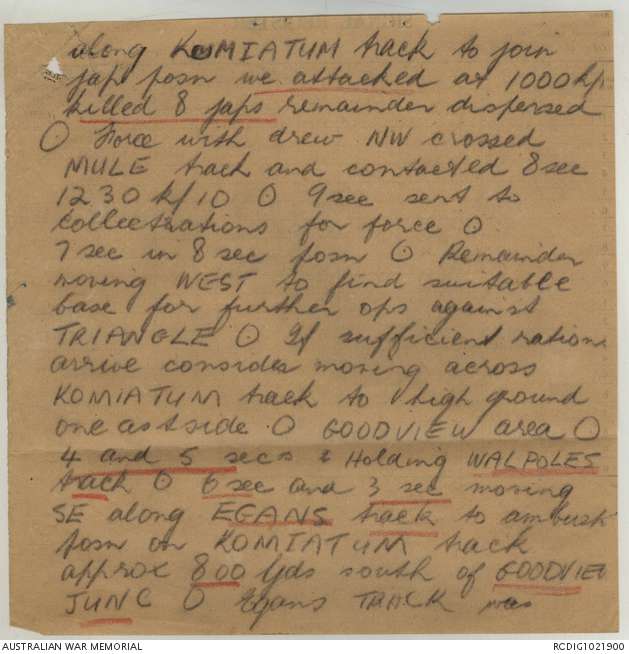 along KOMIATUM track to join
jap posn we attacked at 1000 k/
killed 8 japs remainder dispersed
O Force with drew NW crossed
MULE track and contacted 8 sec
1230 k/10 O 9 sec sent to
collect rations for force O
7 sec in 8 sec posn O Remainder
moving WEST to find suitable
base for further ops against
TRIANGLE O If sufficient rations
arrive consider moving across
KOMIATUM track to high ground
one astside O GOODVIEW area O
4 and 5 secs Holding WALPOLES
track O 6 sec and 3 sec moving
SE along EGANS track to ambush
posn on KOMIATUM track
approx 800 yds south of GOODVIEW
JUNC O Egans TRACK was
AUSTRALIAN WAR MEMORIAL
RCDIG1021900